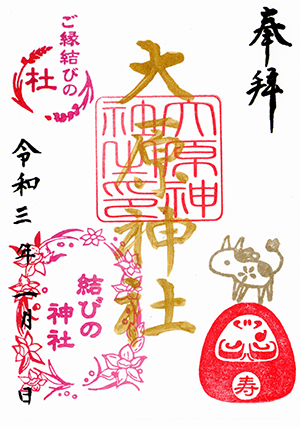 奉拝
大原神社
大原神
神社之印
ご縁結びの
杜
令和三年一月 日
結びの
神社
寿